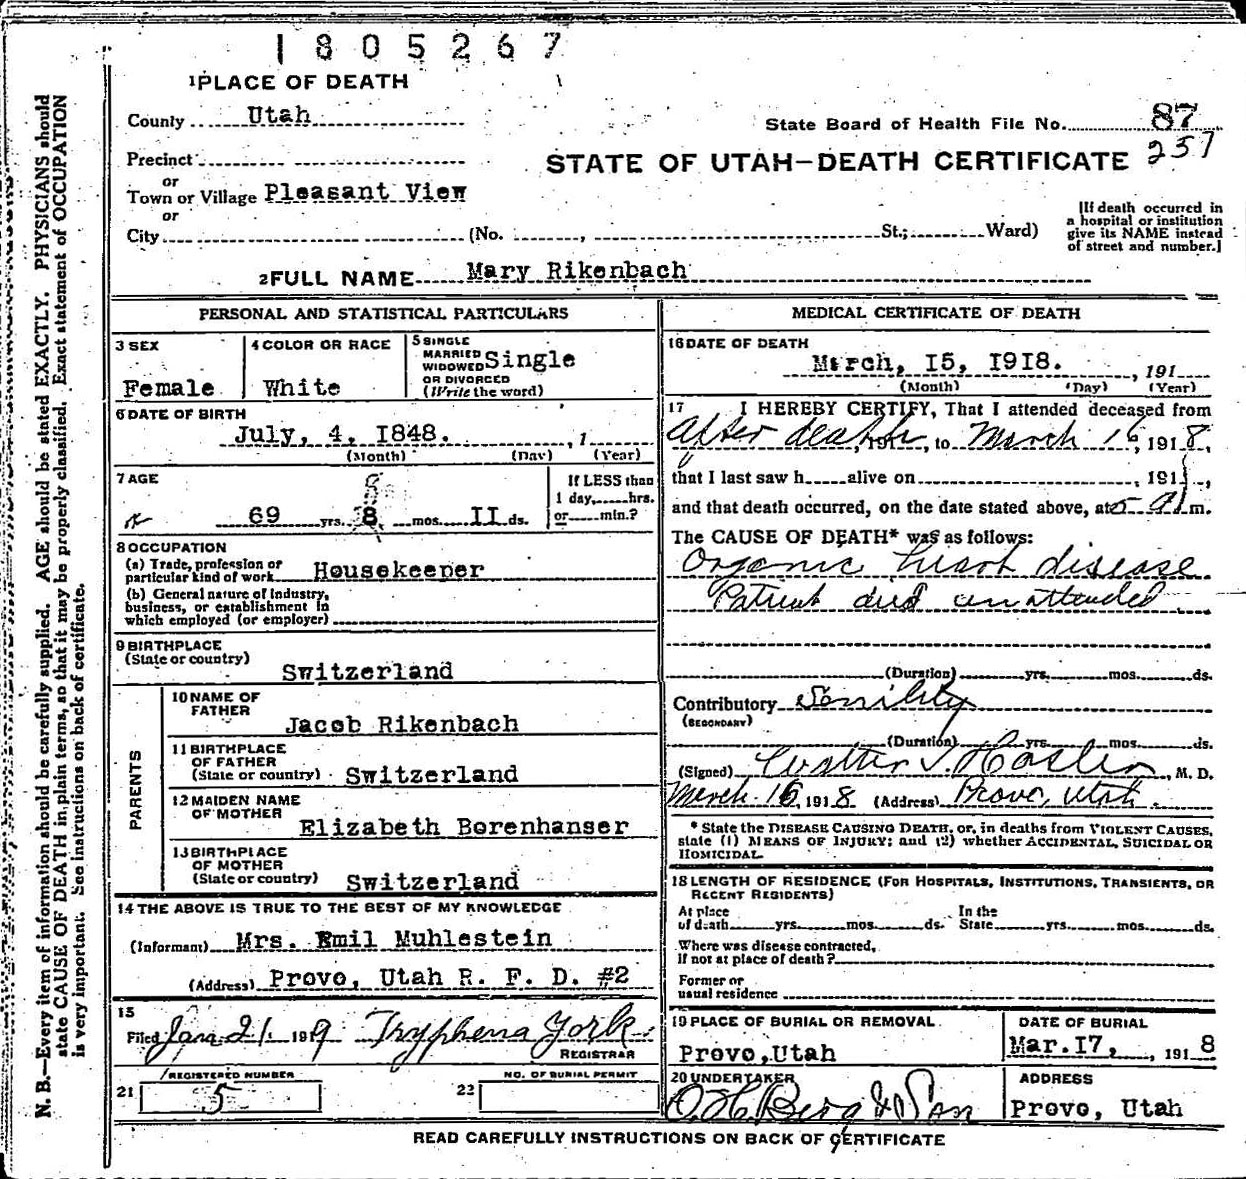 1805267
1 PLACE OF DEATH
County Utah
State Board of Health File No. 87
Precinct
STATE OF UTAH—DEATH CERTIFICATE 257
or
Town or Village Pleasant View
or
City (No. , St.; Ward)
[If death occurred in
a hospital or institution
give its NAME instead
of street and number.]
2 FULL NAME Mary Rikenbach
PERSONAL AND STATISTICAL PARTICULARS
3 SEX
Female
4 COLOR OR RACE
White
5 SINGLE
MARRIED
WIDOWED
OR DIVORCED
(Write the word)
Single
6 DATE OF BIRTH
July, 4, I848. , 1
(Month) (Day) (Year)
7 AGE
8
69 yrs. 8 mos. II ds.
If LESS than
1 day, hrs.
or min.?
8 OCCUPATION
(a) Trade, profession or
particular kind of work Housekeeper
(b) General nature of Industry,
business, or establishment in
which employed (or employer)
9 BIRTHPLACE
(State or country)
Switzerland
PARENTS
10 NAME OF
FATHER
Jacob Rikenbach
11 BIRTHPLACE
OF FATHER
(State or country) Switzerland
12 MAIDEN NAME
OF MOTHER
Elizabeth Borenhanser
13 BIRTHPLACE
OF MOTHER
(State or country) Switzerland
14 THE ABOVE IS TRUE TO THE BEST OF MY KNOWLEDGE
(Informant) Mrs. Emil Muhlestein
(Address) Provo, Utah R. F. D. #2
15
Filed Jan 21. 1919 Tryphena York
REGISTRAR
REGISTERED NUMBER
21 5
NO. OF BURIAL PERMIT
22
MEDICAL CERTIFICATE OF DEATH
16 DATE OF DEATH
March, I5, I9I8. , 191
(Month) (Day) (Year)
17 I HEREBY CERTIFY, That I attended deceased from
After death, 191 , to March 16, 1918,
that I last saw h alive on , 191 ,
and that death occurred, on the date stated above, at 5 A m.
The CAUSE OF DEATH* was as follows:
Organic heart disease
Patient died unattended
(Duration) yrs. mos. ds.
Contributory Senility
(SECONDARY)
(Duration) yrs. mos. ds.
(Signed) Walter T. Hasler, M. D.
March 16, 1918 (Address) Provo, Utah.
* State the DISEASE CAUSING DEATH, or, in deaths from VIOLENT CAUSES,
state (1) MEANS OF INJURY; and (2) whether ACCIDENTAL, SUICIDAL OR
HOMICIDAL.
18 LENGTH OF RESIDENCE (FOR HOSPITALS, INSTITUTIONS, TRANSIENTS, OR
RECENT RESIDENTS)
At place
of death yrs. mos. ds.
In the
State yrs. mos. ds.
Where was disease contracted,
if not at place of death?
Former or
usual residence
19 PLACE OF BURIAL OR REMOVAL
Provo, Utah
DATE OF BURIAL
Mar. I7, , 1918
20 UNDERTAKER
O. H. Berg & Son
ADDRESS
Provo, Utah
READ CAREFULLY INSTRUCTIONS ON BACK OF CERTIFICATE
N. B.—Every item of information should be carefully supplied. AGE should be stated EXACTLY. PHYSICIANS should
state CAUSE OF DEATH in plain terms, so that it may be properly classified. Exact statement of OCCUPATION
is very important. See instructions on back of certificate.